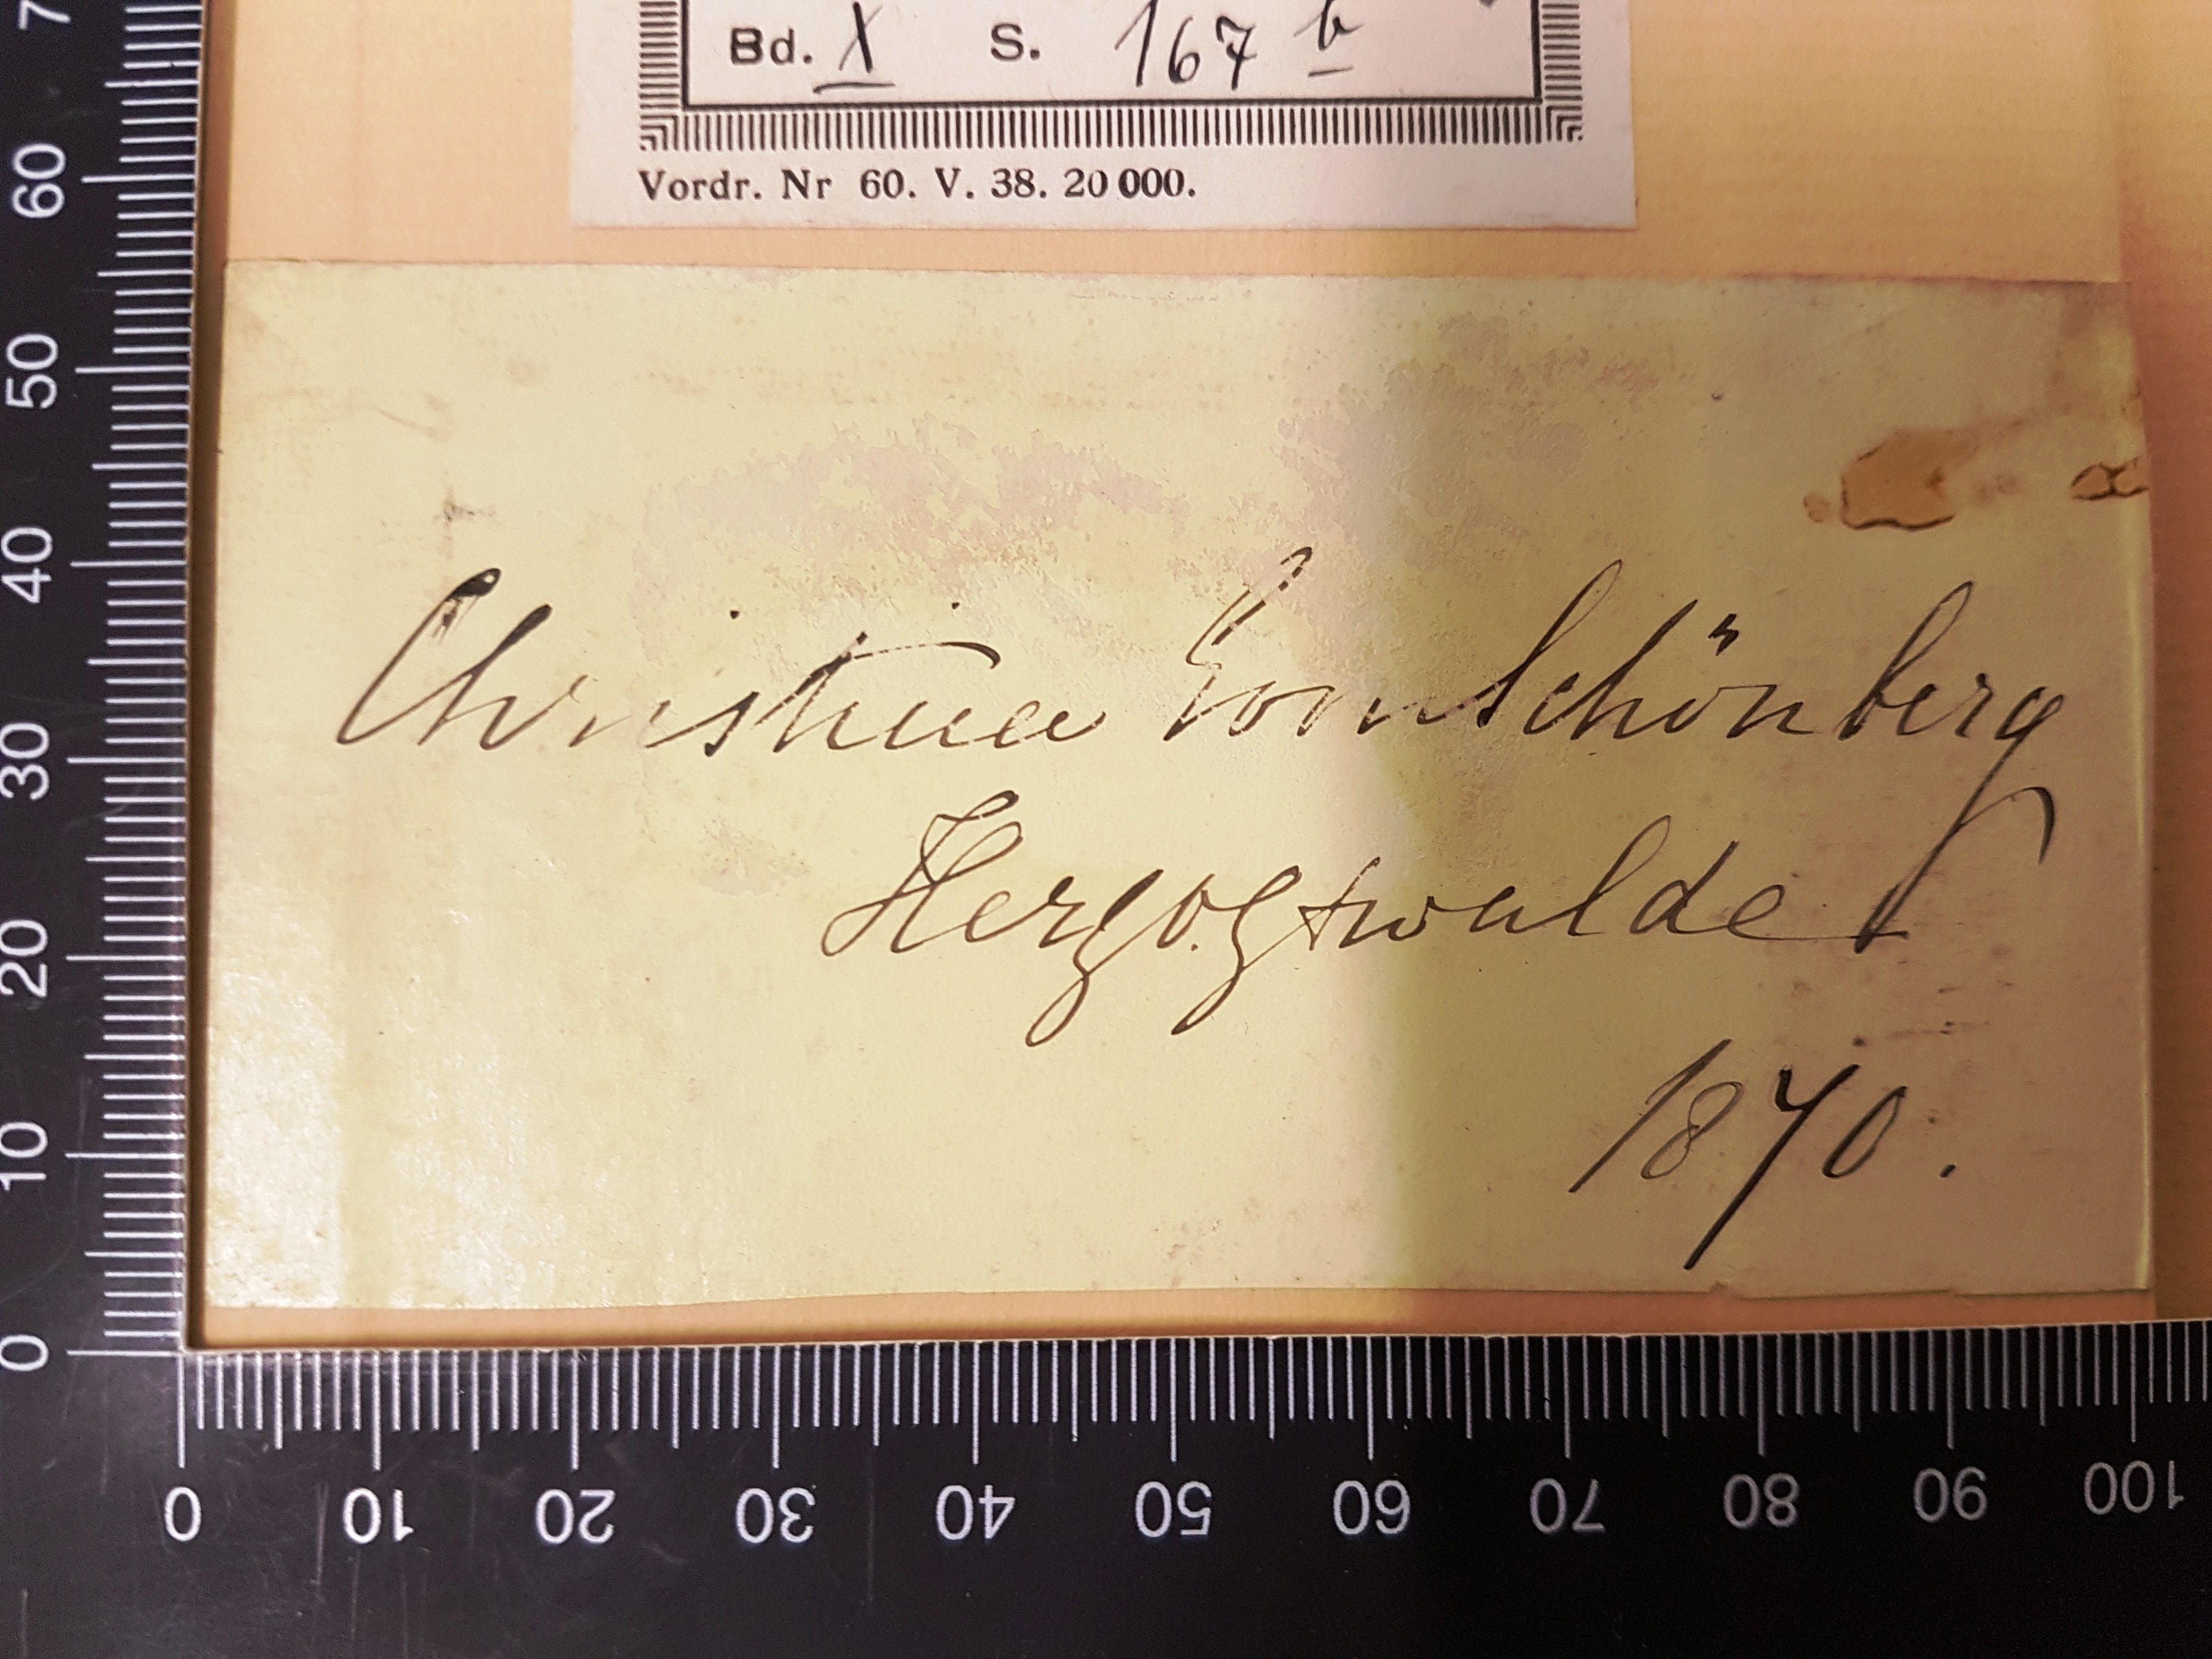 Bd. X S. 167 b
Vordr. Nr 60. V. 38. 20 000.
Christina von Schönberg
Herzogswalde
1870.
7
60
50
40
30
20
10
0
0 10 20 30 40 50 60 70 80 90 100